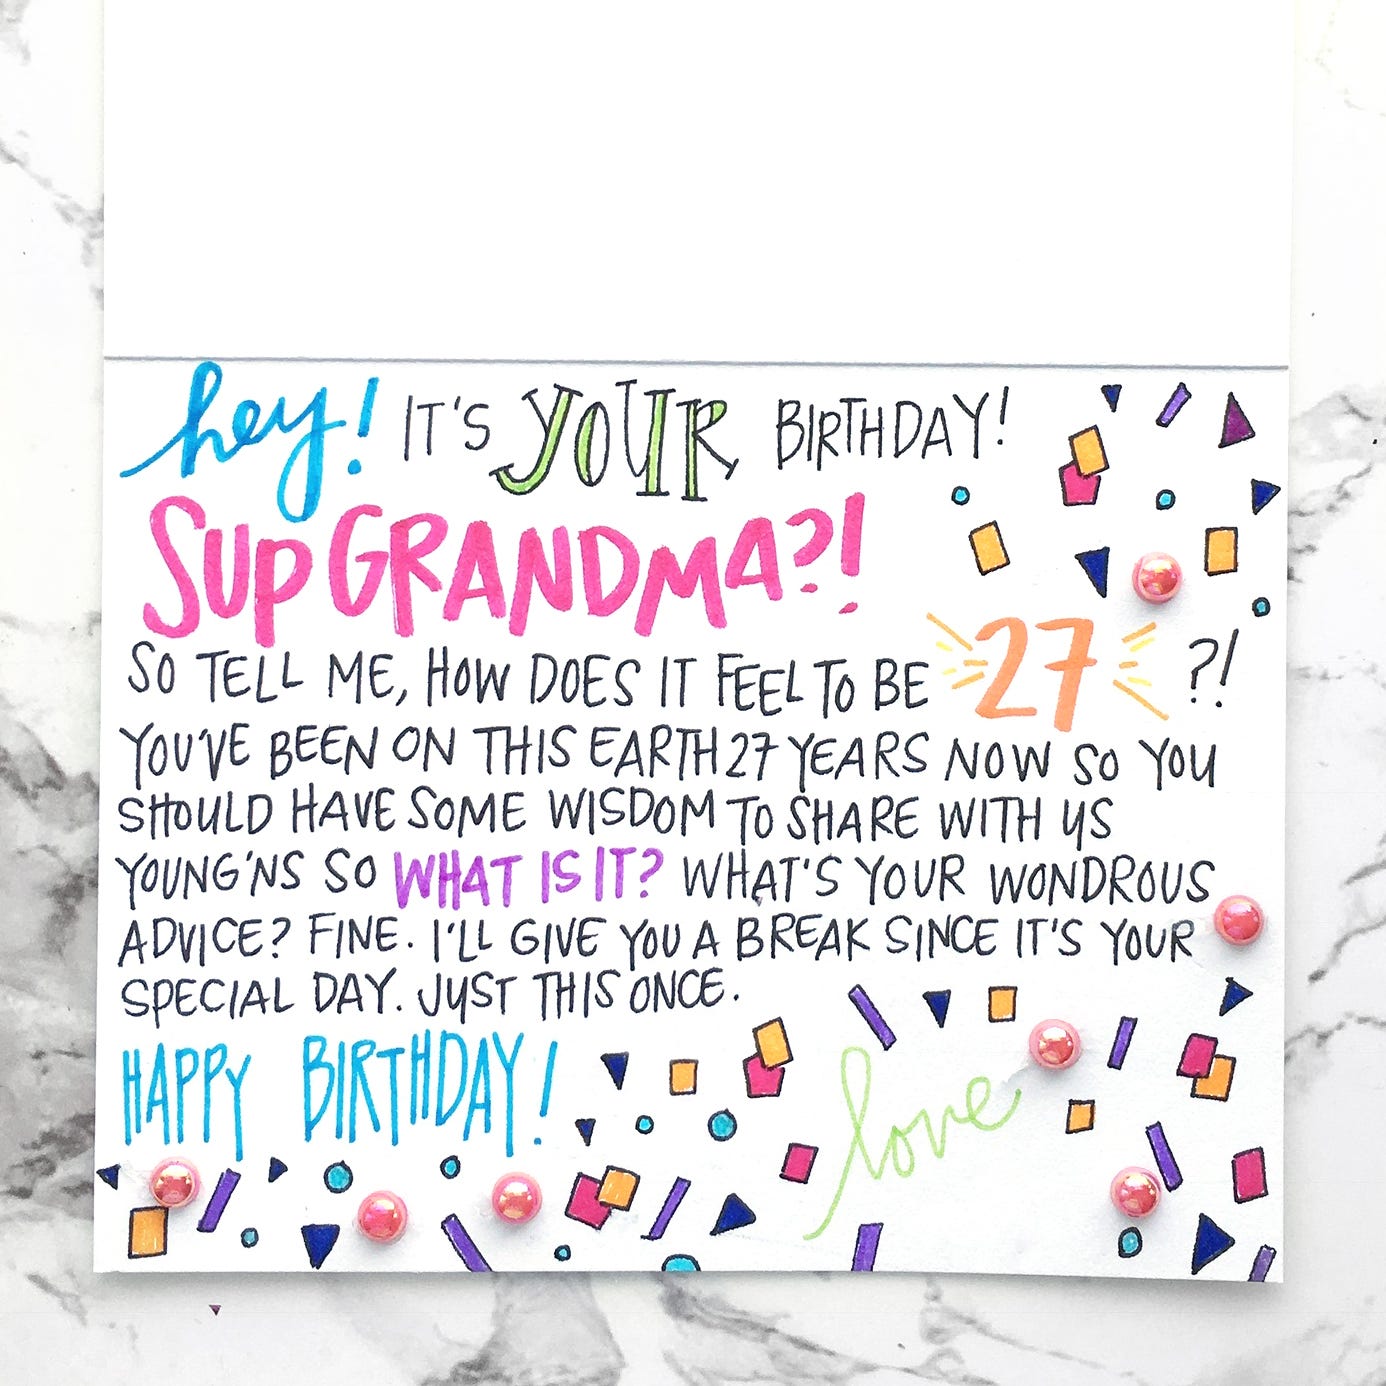 hey! IT'S YOUR BIRTHDAY!
SUP GRANDMA?!
SO TELL ME, HOW DOES IT FEEL TO BE 27?!
YOU'VE BEEN ON THIS EARTH 27 YEARS NOW SO YOU
SHOULD HAVE SOME WISDOM TO SHARE WITH US
YOUNG'NS SO WHAT IS IT? WHAT'S YOUR WONDROUS
ADVICE? FINE. I'LL GIVE YOU A BREAK SINCE IT'S YOUR
SPECIAL DAY. JUST THIS ONCE.
HAPPY BIRTHDAY!
love